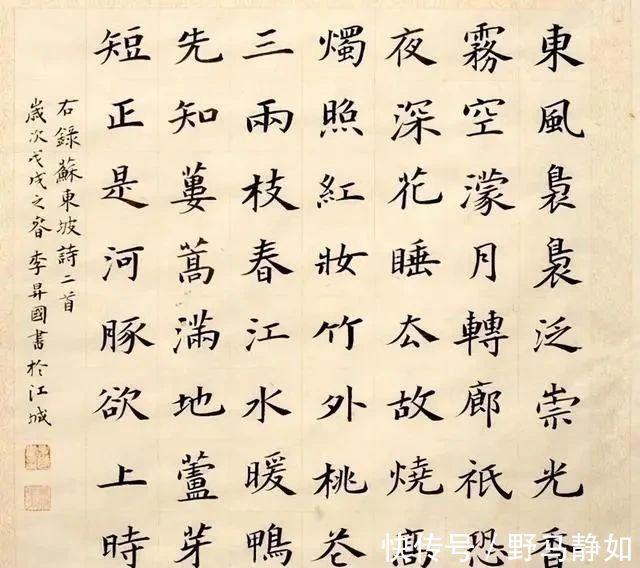 東風裊裊泛崇光香
霧空濛月轉廊祇恐
夜深花睡去故燒高
燭照紅妝竹外桃花
三兩枝春江水暖鴨
先知蔞蒿滿地蘆芽
短正是河豚欲上時
右錄蘇東坡詩二首
歲次戊戌之春李昇國書於江城
快传号 / 野马静如